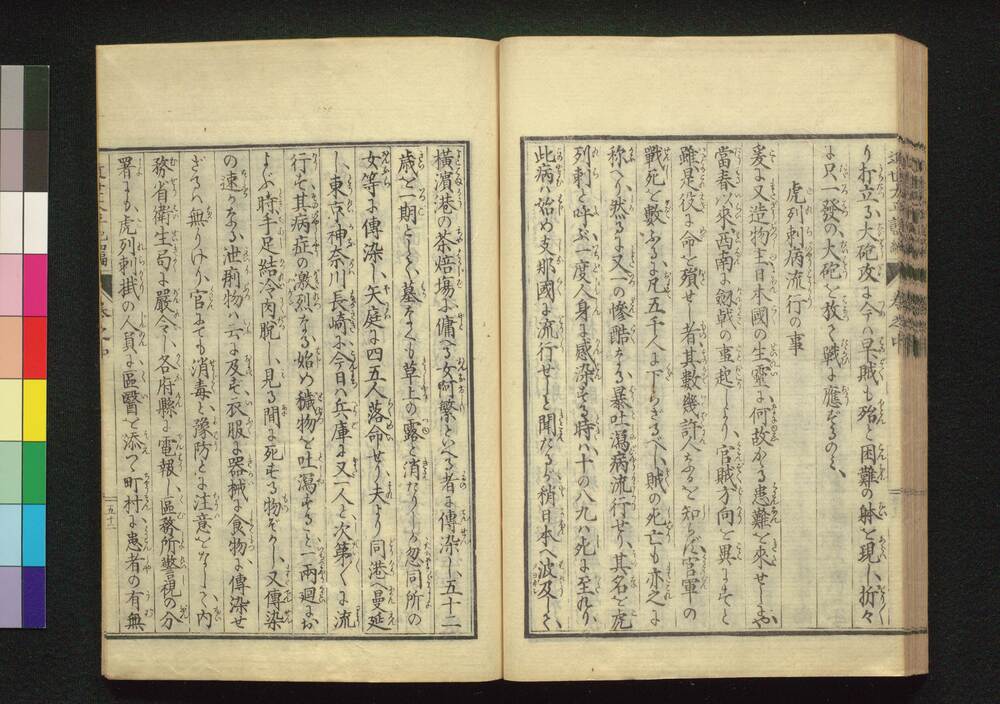 り打立る大砲攻に今ハ早賊も殆と困難の躰を現し折々
に只一發の大砲を放ち戰に應ずるのミ
虎列刺病流行の事
爰に又造物主日本國の生靈に何故かゝる患難を來せしにや
當春以來西南に劔戟の事起しより官賊方向を異にすと
雖是役に命を殞せし者其數幾許人なるを知らず官軍の
戰死を數ふるに凡五千人に下らざるべし賊の死亡も亦之に
称へり然るに又一の惨酷なる暴吐瀉病流行せり其名を虎
列刺と呼ぶ一度人身に感染する時ハ十の八九ハ死に至れり
此病ハ始め支那國に流行せしと聞たるが稍日本へ波及して
橫濱港の茶焙場に傭へる女何繁といへる者に傳染し五十二
歳を一期として墓なくも草上の露と消たりしが忽同所の
女等に傳染し矢庭に四五人落命せり夫より同港へ曼延
し東京神奈川長崎に今日ハ兵庫に又一人と次第〱に流
行す其病症の激烈なる始め穢物を吐瀉すること一兩廻にお
よぶ時手足結冷肉脫し見る間に死する物ぞかし又傳染
の速かなる泄痢物ハ云に及ず衣服に器械に食物に傳染せ
ざるハ無りけり官にても消毒と豫防とに注意をなして内
務省衛生局に嚴令し各府縣に電報し區務所警視の分
署にも虎列刺掛の人員に區醫を添へ町村に患者の有無
卷之中
五十二